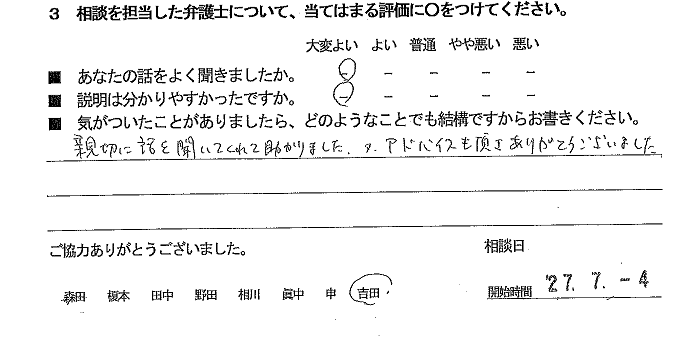 3 相談を担当した弁護士について、当てはまる評価に○をつけてください。
大変よい よい 普通 やや悪い 悪い
■ あなたの話をよく聞きましたか。 - - - - -
■ 説明は分かりやすかったですか。 - - - - -
■ 気がついたことがありましたら、どのようなことでも結構ですからお書きください。
親切に話を聞いてくれて助かりました. アドバイスも頂きありがとうございました
ご協力ありがとうございました。 相談日
森田 榎本 田中 野田 相川 眞中 申 吉田
開始時間 '27. 7. -4